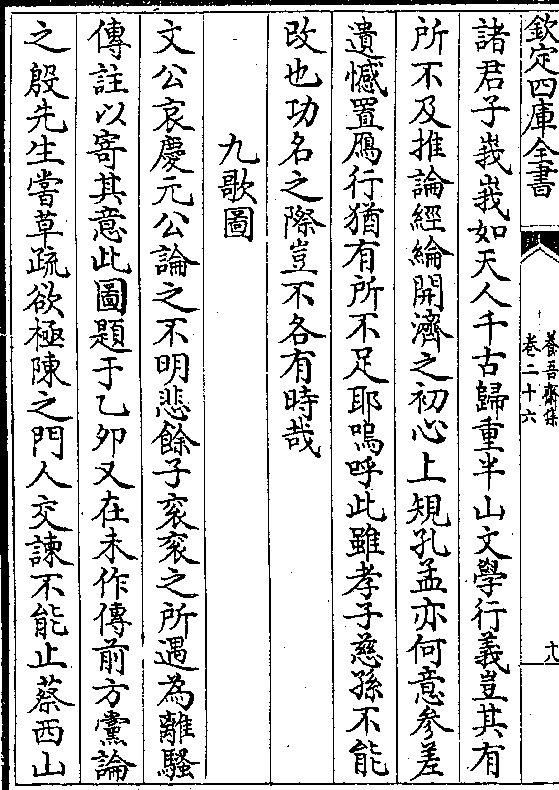 欽定四庫全書
養吾齋集
卷二十六
十八
諸君子峩峩如天人千古歸重半山文學行義豈其有
所不及推論經綸開濟之初心上規孔孟亦何意參差
遺憾置鴈行猶有所不足耶嗚呼此雖孝子慈孫不能
改也功名之際豈不各有時哉
九歌圖
文公哀慶元公論之不明悲餘子衮衮之所遇為離騷
傳註以寄其意此圖題于乙夘又在未作傳前方黨論
之殷先生嘗草疏欲極陳之門人交諫不能止蔡西山